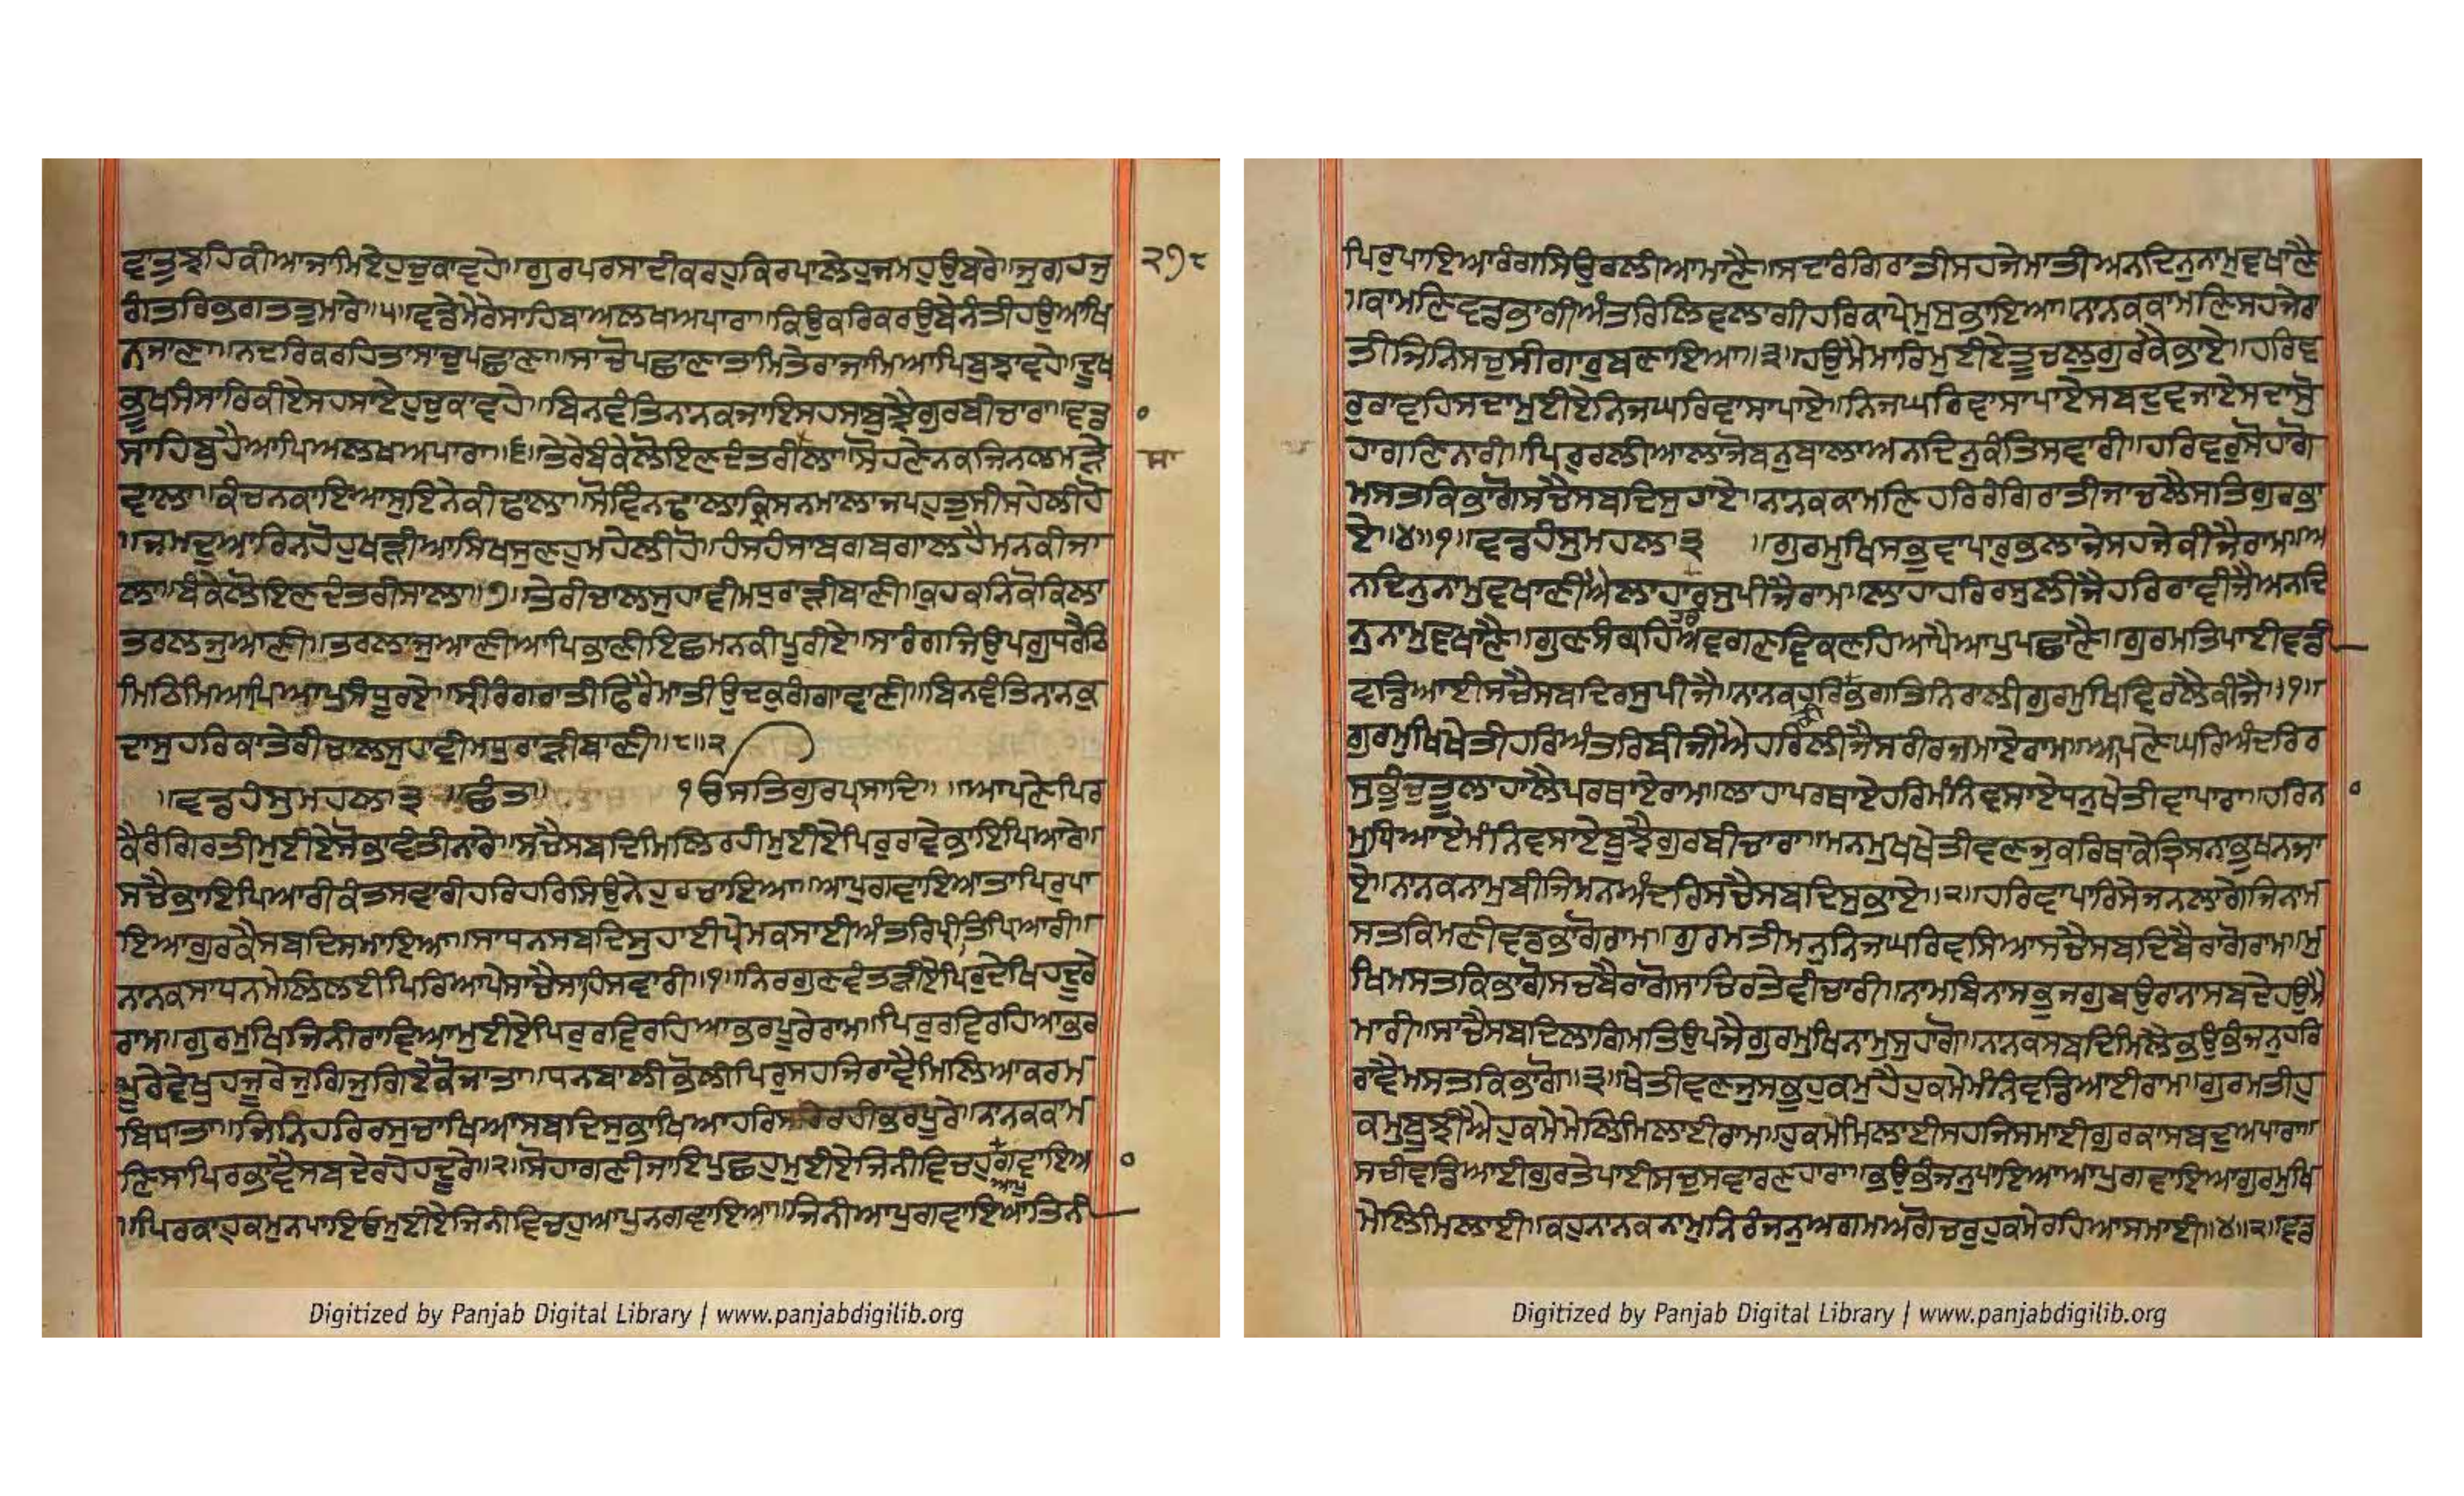 ਵਾਤੁਝਹਿਕੀਆਜਾਮਿਏਹੁਚੁਕਾਵਹੇ॥ਗੁਰਪਰਸਾਦੀਕਰਹੁਕਿਰਪਾਲੇਹੁਜਮਹੁਉਬਰੇ॥ਜੁਗਹਜੁ
ਗੰਤਰਿਭਗਤਤੁਮਾਰੇ॥੫॥ਵਡੇਮੇਰੇਸਾਹਿਬਾਅਲਖਅਪਾਰਾ॥ਕਿਉਕਰਿਕਰਉਬੇਨੰਤੀਹਉਆਖਿ
ਨਜਾਣਾ॥ਨਦਰਿਕਰਹਿਤਾਸਾਚੁਪਛਾਣਾ॥ਸਾਚੋਪਛਾਣਾਤਾਮਿਤੇਰਾਜਾਮਿਆਪਿਬੁਝਾਵਹੇ॥ਦੂਖ
ਭੂਖਸੰਸਾਰਿਕੀਏਸਹਸਾਏਹੁਚੁਕਾਵਹੇ॥ਬਿਨਵੰਤਿਨਾਨਕਜਾਇਸਹਸਾਬੁਝੈਗੁਰਬੀਚਾਰਾ॥ਵਡਾ
ਸਾਹਿਬੁਹੈਆਪਿਅਲਖਅਪਾਰਾ॥੬॥ਤੇਰੇਬੰਕੇਲੋਇਣਦੰਤਰੀਲਾ॥ਸੋਹਣੇਨਕਜਿਨਲਮੜੇ
ਵਾਲਾ॥ਕੰਚਨਕਾਇਆਸੁਇਨੇਕੀਢਾਲਾ॥ਸੋਵਿੰਨਢਾਲਾਕ੍ਰਿਸਨਮਾਲਾਜਪਹੁਤੁਸੀਸਹੇਲੀਹੋ
॥ਜਮਦੁਆਰਿਨਹੋਹੁਖੜੀਆਸਿਖਸੁਣਹੁਮਹੇਲੀਹੋ॥ਹੰਸਹੰਸਾਬਗਬਗਾਲਹੈਮਨਕੀਜਾ
ਲਾ॥ਬੰਕੇਲੋਇਣਦੰਤਰੀਸਾਲਾ॥੭॥ਤੇਰੀਚਾਲਸੁਹਾਵੀਮਧੁਰਾੜੀਬਾਣੀ॥ਕੁਹਕਨਿਕੋਕਿਲਾ
ਤਰਲਜੁਆਣੀ॥ਤਰਲਾਜੁਆਣੀਆਪਿਭਾਣੀਇਛਮਨਕੀਪੂਰੀਏ॥ਸਾਰੰਗਜਿਉਪਗੁਧਰੈਠਿ
ਮਿਠਿਮਿਆਪਿਆਪੁਸੰਧੂਰਏ॥ਸ੍ਰੀਰੰਗਰਾਤੀਫਿਰੈਮਾਤੀਉਦਕੁਗੰਗਾਵਾਣੀ॥ਬਿਨਵੰਤਿਨਾਨਕੁ
ਦਾਸੁਹਰਿਕਾਤੇਰੀਚਾਲਸੁਹਾਵੀਮਧੁਰਾੜੀਬਾਣੀ॥੮॥੨
॥ਵਡਹੰਸੁਮਹਲਾ੩ ॥ਛੰਤ॥ ੴਸਤਿਗੁਰਪ੍ਰਸਾਦਿ॥ ॥ਆਪਣੇਪਿਰ
ਕੈਰੰਗਿਰਤੀਮੁਈਏਸੋਭਾਵੰਤੀਨਾਰੇ॥ਸਚੈਸਬਦਿਮਿਲਿਰਹੀਮੁਈਏਪਿਰੁਰਾਵੇਭਾਇਪਿਆਰੇ॥
ਸਚੈਭਾਇਪਿਆਰੀਕੰਤਸਵਾਰੀਹਰਿਹਰਿਸਿਉਨੇਹੁਰਚਾਇਆ॥ਆਪੁਗਵਾਇਆਤਾਪਿਰੁਪਾ
ਇਆਗੁਰਕੈਸਬਦਿਸਮਾਇਆ॥ਸਾਧਨਸਬਦਿਸੁਹਾਈਪ੍ਰੇਮਕਸਾਈਅੰਤਰਿਪ੍ਰੀਤਿਪਿਆਰੀ॥
ਨਾਨਕਸਾਧਨਮੇਲਿਲਈਪਿਰਿਆਪੇਸਾਚੈਸਾਹਿਸਵਾਰੀ॥੧॥ਨਿਰਗੁਣਵੰਤੜੀਏਪਿਰੁਦੇਖਿਹਦੂਰੇ
ਰਾਮ॥ਗੁਰਮੁਖਿਜਿਨੀਰਾਵਿਆਮੁਈਏਪਿਰੁਰਵਿਰਹਿਆਭਰਪੂਰੇਰਾਮ॥ਪਿਰੁਰਵਿਰਹਿਆਭਰ
ਪੂਰੇਵੇਖੁਹਜੂਰੇਜੁਗਿਜੁਗਿਏਕੋਜਾਤਾ॥ਧਨਬਾਲੀਭੋਲੀਪਿਰੁਸਹਜਿਰਾਵੈਮਿਲਿਆਕਰਮ
ਬਿਧਾਤਾ॥ਜਿਨਿਹਰਿਰਸੁਚਾਖਿਆਸਬਦਿਸੁਭਾਖਿਆਹਰਿਸਰਿਰਹੀਭਰਪੂਰੇ॥ਨਾਨਕਕਾਮ
ਣਿਸਾਪਿਰਭਾਵੈਸਬਦੇਰਹੇਹਦੂਰੇ॥੨॥ਸੋਹਾਗਣੀਜਾਇਪੂਛਹੁਮੁਈਏਜਿਨੀਵਿਚਹੁਗਵਾਇਆ
ਆਪੁ
॥ਪਿਰਕਾਹੁਕਮੁਨਪਾਇਓਮੁਈਏਜਿਨੀਵਿਚਹੁਆਪੁਨਗਵਾਇਆ॥ਜਿਨੀਆਪੁਗਵਾਇਆਤਿਨੀ
੨੭੮
ਸਾ
ਪਿਰੁਪਾਇਆਰੰਗਸਿਉਰਲੀਆਮਾਣੈ॥ਸਦਾਰੰਗਿਰਾਤੀਸਹਜੇਮਾਤੀਅਨਦਿਨੁਨਾਮੁਵਖਾਣੈ
॥ਕਾਮਣਿਵਡਭਾਗੀਅੰਤਰਿਲਿਵਲਾਗੀਹਰਿਕਾਪ੍ਰੇਮੁਸੁਭਾਇਆ॥ਨਾਨਕਕਾਮਣਿਸਹਜੇਰਾ
ਤੀਜਿਨਿਸਚੁਸੀਗਾਰੁਬਣਾਇਆ॥੩॥ਹਉਮੈਮਾਰਿਮੁਈਏਤੂਚਲੁਗੁਰਕੈਭਾਏ॥ਹਰਿਵ
ਰੁਰਾਵਹਿਸਦਾਮੁਈਏਨਿਜਘਰਿਵਾਸਾਪਾਏ॥ਨਿਜਘਰਿਵਾਸਾਪਾਏਸਬਦੁਵਜਾਏਸਦਾਸੁੋ
ਹਾਗਣਿਨਾਰੀ॥ਪਿਰੁਰਲੀਆਲਾਜੋਬਨੁਬਾਲਾਅਨਦਿਨੁਕੰਤਿਸਵਾਰੀ॥ਹਰਿਵਰੁਸੋਹਾਗੋ
ਮਸਤਕਿਭਾਗੋਸਚੈਸਬਦਿਸੁਹਾਏ॥ਨਾਨਕਕਾਮਣਿਹਰਿਰੰਗਿਰਾਤੀਜਾਚਲੈਸਤਿਗੁਰਭਾ
ਏ॥੪॥੧॥ਵਡਹੰਸੁਮਹਲਾ੩ ॥ਗੁਰਮੁਖਿਸਭੁਵਾਪਾਰੁਭਲਾਜੇਸਹਜੇਕੀਜੈਰਾਮ॥ਅ
ਨਦਿਨੁਨਾਮੁਵਖਾਣੀਐਲਾਹਾਰਸੁਪੀਜੈਰਾਮ॥ਲਾਹਾਹਰਿਰਸੁਲੀਜੈਹਰਿਰਾਵੀਜੈਅਨਦਿ
ਨੁਨਾਮੁਵਖਾਣੈ॥ਗੁਣਸੰਗ੍ਰਹਿਅਵਗਣਵਿਕਣਹਿਆਪੈਆਪੁਪਛਾਣੈ॥ਗੁਰਮਤਿਪਾਈਵਡੀ
ਵਡਿਆਈਸਚੈਸਬਦਿਰਸੁਪੀਜੈ॥ਨਾਨਕਹਰਿਭਗਤਿਨਿਰਾਲੀਗੁਰਮੁਖਿਵਿਰਲੈਕੀਜੈ॥੧॥
ਗੁਰਮੁਖਿਖੇਤੀਹਰਿਅੰਤਰਿਬੀਜੀਐਹਰਿਲੀਜੈਸਰੀਰਜਮਾਏਰਾਮ॥ਆਪਣੇਘਰਿਅੰਦਰਿਰ
ਸੁਭੁੰਚੁਤੂਲਾਹਾਲੈਪਰਥਾਏਰਾਮ॥ਲਾਹਾਪਰਥਾਏਹਰਿਮੰਨਿਵਸਾਏਧਨੁਖੇਤੀਵਾਪਾਰਾ॥ਹਰਿਨਾ
ਮੁਧਿਆਏਮੰਨਿਵਸਾਏਬੂਝੈਗੁਰਬੀਚਾਰਾ॥ਮਨਮੁਖਖੇਤੀਵਣਜੁਕਰਿਥਾਕੇਤ੍ਰਿਸਨਾਭੁਖਨਜਾ
ਏ॥ਨਾਨਕਨਾਮੁਬੀਜਿਮਨਅੰਦਰਿਸਚੈਸਬਦਿਸੁਭਾਏ॥੨॥ਹਰਿਵਾਪਾਰਿਸੇਜਨਲਾਗੇਜਿਨਾਮ
ਸਤਕਿਮਣੀਵਡਭਾਗੋਰਾਮ॥ਗੁਰਮਤੀਮਨੁਨਿਜਘਰਿਵਸਿਆਸਚੈਸਬਦਿਬੈਰਾਗੋਰਾਮ॥ਮੁ
ਖਿਮਸਤਕਿਭਾਗੋਸਚਬੈਰਾਗੋਸਾਚਿਰਤੇਵੀਚਾਰੀ॥ਨਾਮਬਿਨਾਸਭੁਜਗੁਬਉਰਾਨਾਸਬਦੇਹਉਮੈ
ਮਾਰੀ॥ਸਾਚੈਸਬਦਿਲਾਗਿਮਤਿਉਪਜੈਗੁਰਮੁਖਿਨਾਮੁਸੁਹਾਗੋ॥ਨਾਨਕਸਬਦਿਮਿਲੈਭਉਭੰਜਨੁਹਰਿ
ਰਾਵੈਮਸਤਕਿਭਾਗੋ॥੩॥ਖੇਤੀਵਣਜੁਸਭੁਹੁਕਮੁਹੈਹੁਕਮੇਮੰਨਿਵਡਿਆਈਰਾਮ॥ਗੁਰਮਤੀਹੁ
ਕਮੁਬੂਝੀਐਹੁਕਮੇਮੇਲਿਮਿਲਾਈਰਾਮ॥ਹੁਕਮੇਮਿਲਾਈਸਹਜਿਸਮਾਈਗੁਰਕਾਸਬਦੁਅਪਾਰਾ॥
ਸਚੀਵਡਿਆਈਗੁਰਤੇਪਾਈਸਚੁਸਵਾਰਣਹਾਰਾ॥ਭਉਭੰਜਨੁਪਾਇਆਆਪੁਗਵਾਇਆਗੁਰਮੁਖਿ
ਮੇਲਿਮਿਲਾਈ॥ਕਹੁਨਾਨਕਨਾਮੁਨਿਰੰਜਨੁਅਗਮਅਗੋਚਰੁਹੁਕਮੇਰਹਿਆਸਮਾਈ॥੪॥੨॥ਵਡ
Digitized by Panjab Digital Library | www.panjabdigilib.org
Digitized by Panjab Digital Library | www.panjabdigilib.org